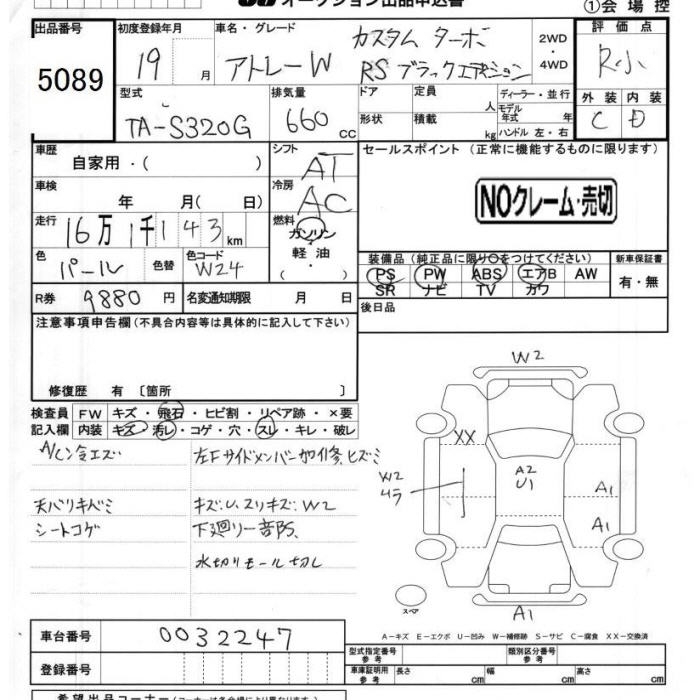 オークション出品申込書
①会場控
出品番号
5089
初度登録年月
19 月
車名・グレード
アトレーW
カスタム ターボ
RS ブラックエディション
2WD
・
4WD
評価点
R小
外装 内装
C D
型式
TA-S320G
排気量
660 cc
ドア
形状
定員 人
積載 kg
ディーラー・並行
モデル年式 年
ハンドル 左・右
車歴
自家用・( )
シフト
AT
セールスポイント (正常に機能するものに限ります)
NOクレーム・売切
車検
年 月( 日)
冷房
AC
走行
16万1千143km
燃料
ガソリン
軽油
( ・ )
色
パール
色替
色コード
W24
装備品(純正品に限り○をつけてください)
PS PW ABS エアB AW
SR ナビ TV カワ
新車保証書
有・無
R券 9880円
名変通知期限 月 日
後日品
注意事項申告欄(不具合内容等は具体的に記入して下さい)
修復歴 有 〔箇所 〕
検査員記入欄
FW キズ・飛石・ヒビ割・リペア跡・×要
内装 キズ・汚レ・コゲ・穴・スレ・キレ・破レ
天バリキバミ
シートコゲ
キズ.U.スリキズ.W2
水切りモール切レ
W2
XX
A2
U1
W2
A1
A1
スペア
A1
A-キズ E-エクボ U-凹み W-補修跡 S-サビ C-腐食 XX-交換済
車台番号
0032247
登録番号
型式指定番号
参考
類別区分番号
参考
車庫証明用
参考
長さ cm
幅 cm
高さ cm
希望出品コーナー